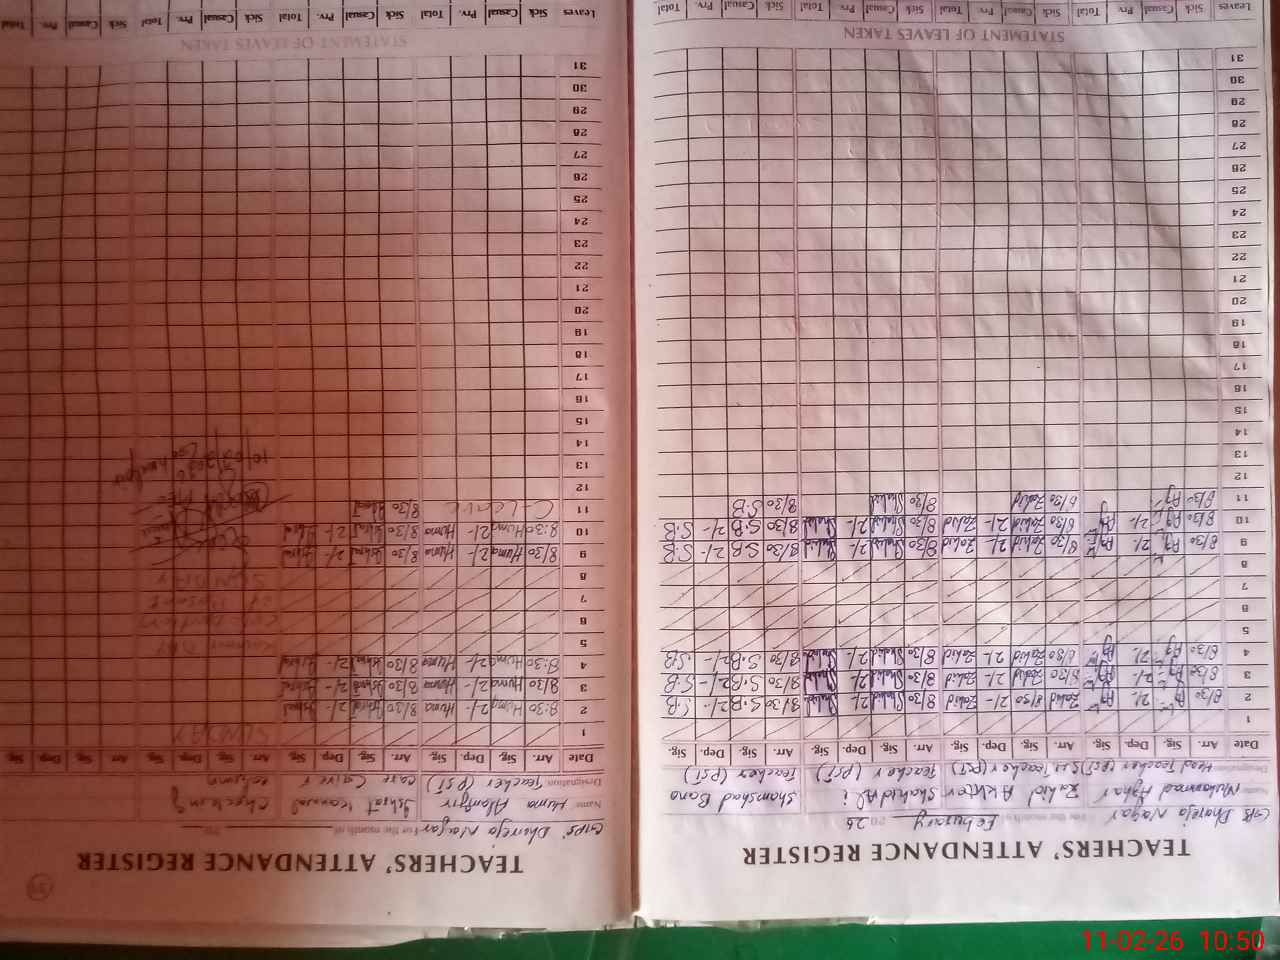 TEACHERS' ATTENDANCE REGISTER
GPS Dhareja Nagar For the month of Feburary 20 26
Name Muhammad Azhar Zahid Akhter Shahid Ali Shamshad Bano
Designation Head Teacher (PST) Teacher (PST) Teacher (PST) Teacher (PST)
Date Arr. Sig. Dep. Sig. Arr. Sig. Dep. Sig. Arr. Sig. Dep. Sig. Arr. Sig. Dep. Sig.
1
2 8/30 2/- Zahid 8/30 2/- Zahid 8/30 Shahid 2/- Shahid 8/30 S.B 2/- S.B
3 8/30 2/- 8/30 Zahid 2/- Zahid 8/30 Shahid 2/- Shahid 8/30 S.B 2/- S.B
4 8/30 2/- 8/30 Zahid 2/- Zahid 8/30 Shahid 2/- Shahid 8/30 S.B 2/- S.B
5
6
7
8
9 8/30 2/- 8/30 Zahid 2/- Zahid 8/30 Shahid 2/- Shahid 8/30 S.B 2/- S.B
10 8/30 2/- 8/30 Zahid 2/- Zahid 8/30 Shahid 2/- Shahid 8/30 S.B 2/- S.B
11 8/30 8/30 Zahid 8/30 Shahid 8/30 S.B
12
13
14
15
16
17
18
19
20
21
22
23
24
25
26
27
28
29
30
31
STATEMENT OF LEAVES TAKEN
Leaves Sick Casual Prv. Total Sick Casual Prv. Total Sick Casual Prv. Total Sick Casual Prv. Total
TEACHERS' ATTENDANCE REGISTER
GPS Dhareja Nagar For the month of 20
Name Huma Alamgir Ishrat Kanwal Checking
Designation Teacher (PST) Care Giver
Date Arr. Sig. Dep. Sig. Arr. Sig. Dep. Sig. Arr. Sig. Dep. Sig. Arr. Sig. Dep. Sig.
1 SUNDAY
2 8:30 Huma 2/- Huma 8/30 Ishrat 2/- Ishrat
3 8/30 Huma 2/- Huma 8/30 Ishrat 2/- Ishrat
4 8:30 Huma 2/- Huma 8/30 Ishrat 2/- Ishrat
5
6
7
8 SUNDAY
9 8/30 Huma 2/- Huma 8/30 Ishrat 2/- Ishrat
10 8:30 Huma 2/- Huma 8/30 Ishrat 2/- Ishrat
11 C-Leave 8/30 Ishrat
12
13
14
15
16
17
18
19
20
21
22
23
24
25
26
27
28
29
30
31
STATEMENT OF LEAVES TAKEN
Leaves Sick Casual Prv. Total Sick Casual Prv. Total Sick Casual Prv. Total Sick Casual Prv. Total
11-02-26 10:50